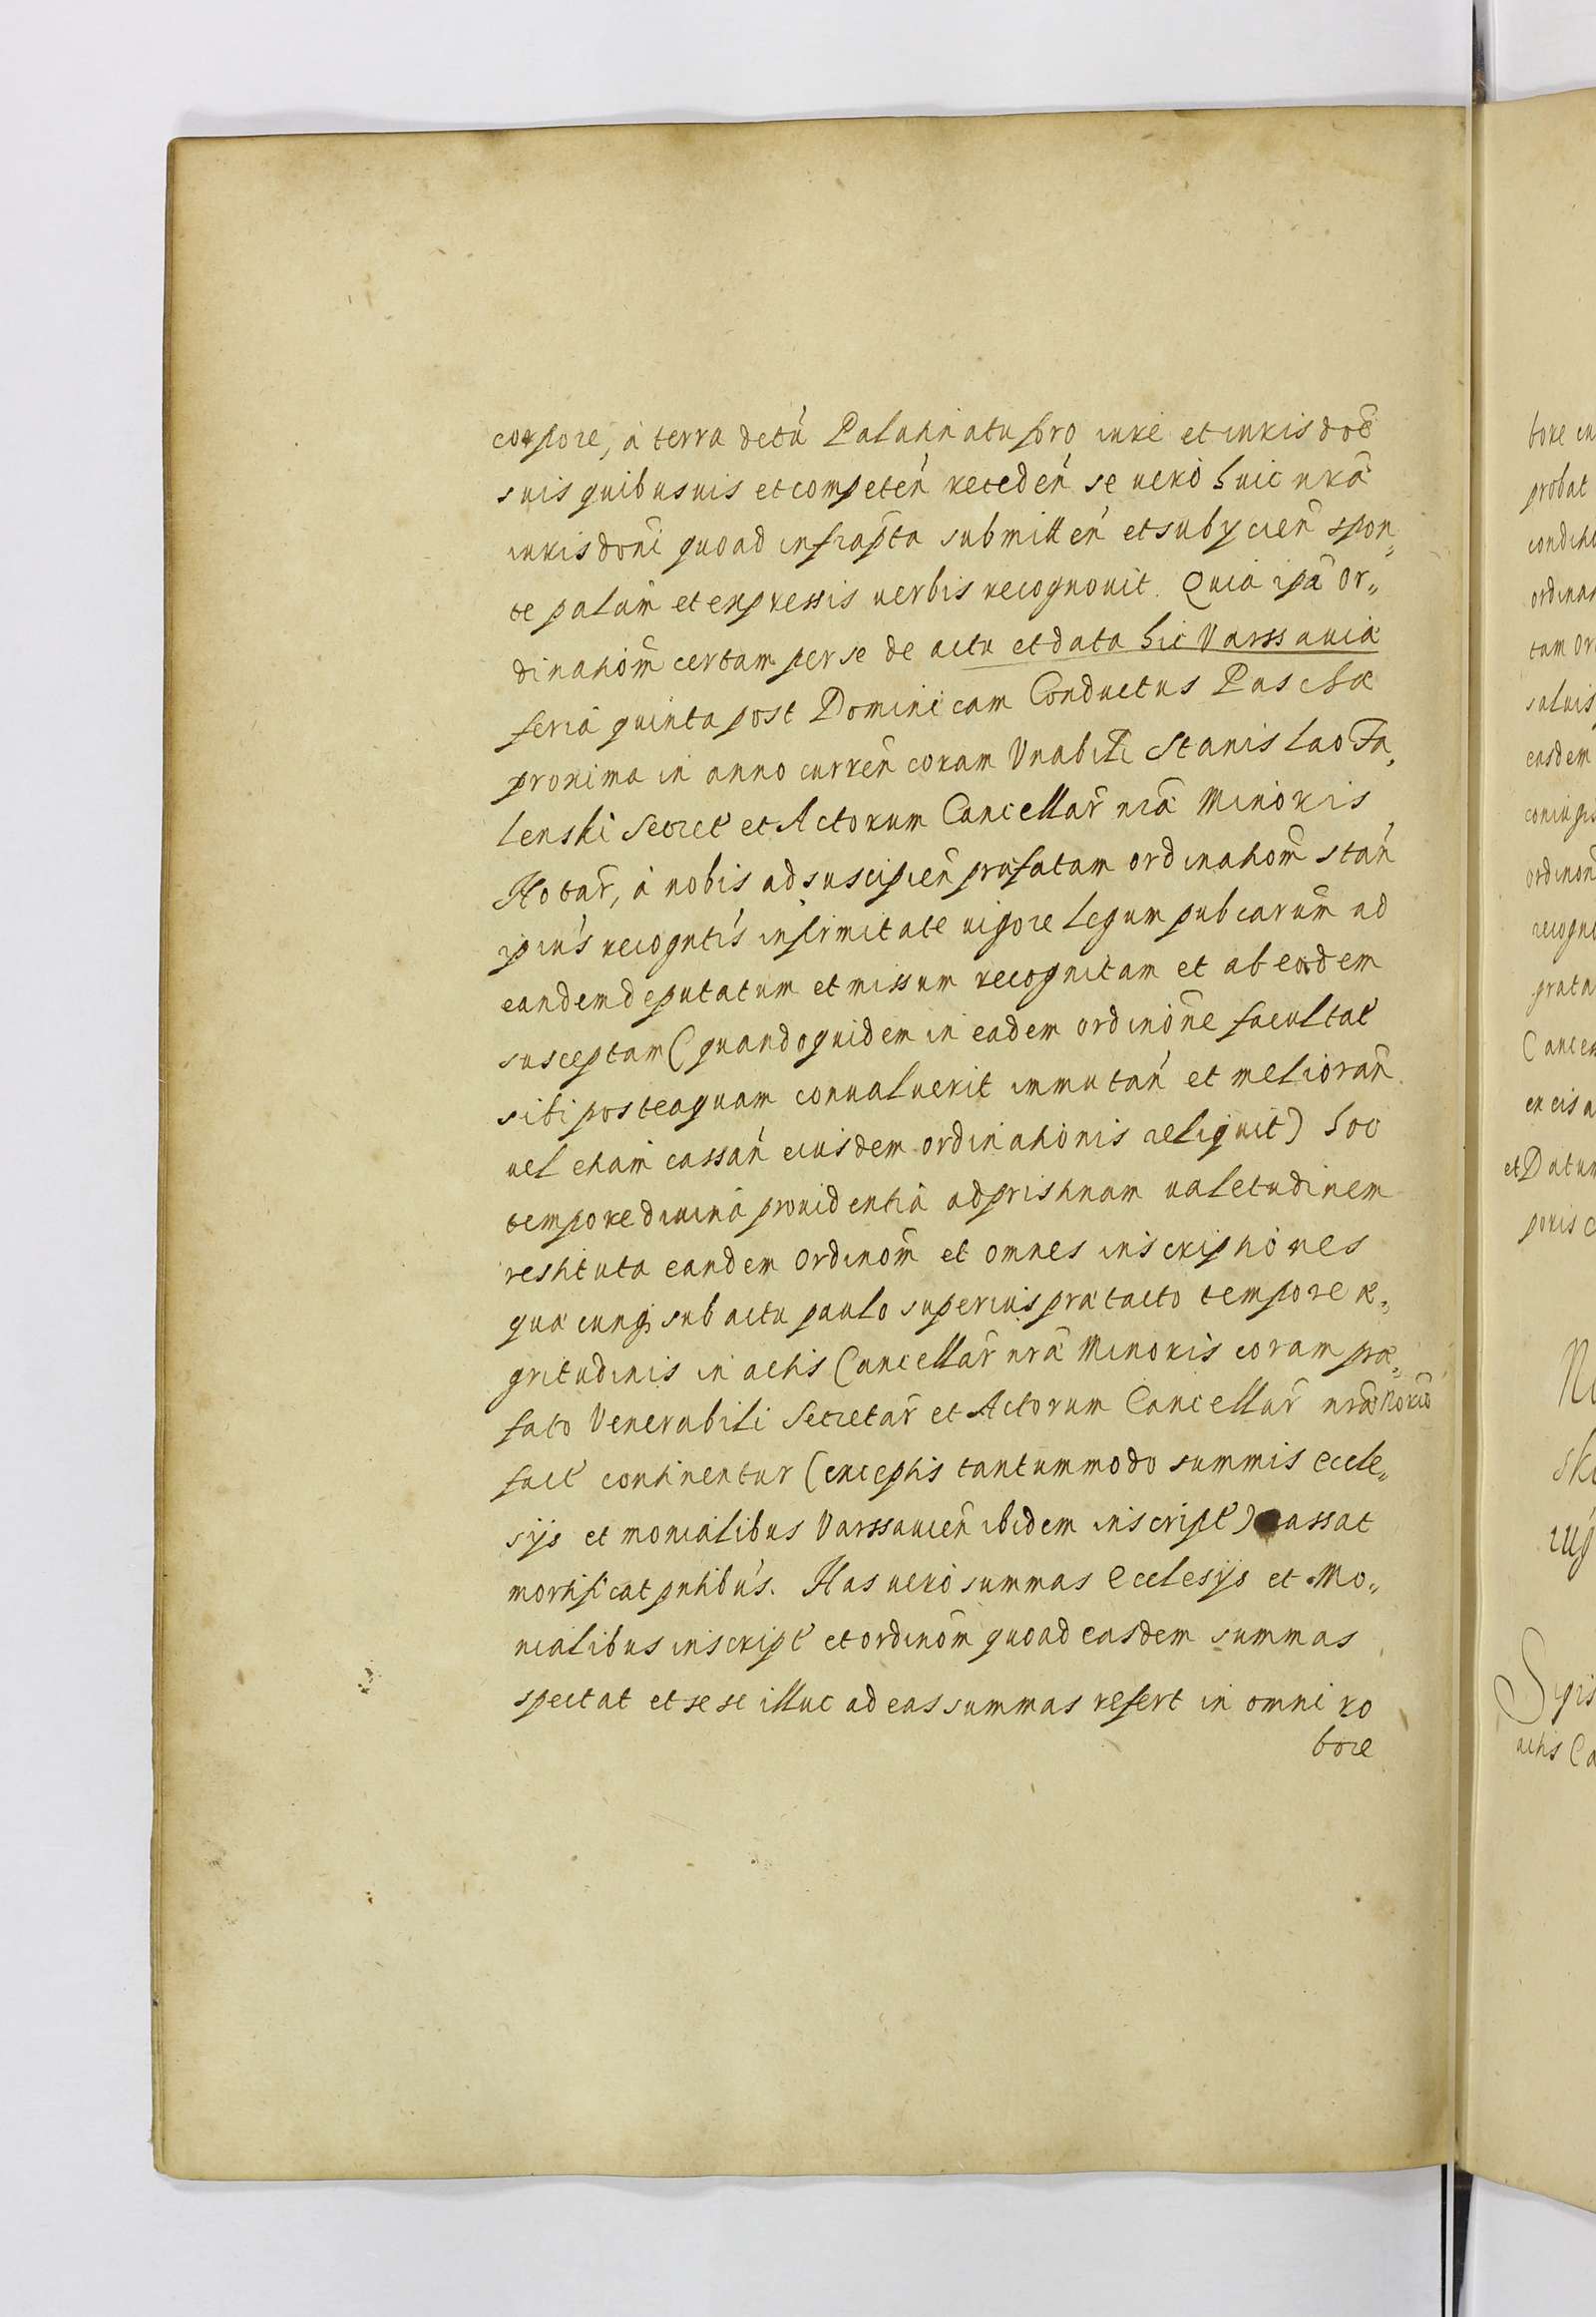 corpore, á terra dctũ Palatinatu foro iure et iurisdoẽ
suis quibusuis et competeñ recedeñ se uero huic nrã
iurisdoni quoad infrapta submitteñ et subycieñ spon„
te palam et expressis uerbis recognouit. Quia ipã or„
dinatiom̃ certam per se de actu et data hic Varssauiæ
feria quinta post Dominicam Conductus Paschæ
proxima in anno curreñ coram Vnabili Stanislao Fa„
lenski Secret et Actorum Cancellar̃ nræ Minoris
Notar̃, á nobis ad suscipieñ præfatam ordinatiom̃ stañ
ipius recogntis infirmitate uigore legum pubcarum ad
eandem deputatum et missum recognitam et ab eodem
susceptam (quandoquidem in eadem ordinoñe facultat
sibi posteaquam conualuerit immutañ et meliorañ
uel etiam cassañ eiusdem ordinationis reliquit) hoc
tempore diuina prouidentia ad pristinam ualetudinem
restituta eandem ordinom̃ et omnes inscriptiones
quæcunq sub actu paulo superius prætacto tempore æ„
gritudinis in actis Cancellar̃ nræ Minoris coram præ„
fato Venerabili Secretar̃ et Actorum Cancellar̃ nræ Norio
fact continentur (exceptis tantummodo summis Eccle„
sijs et monialibus Varssauieñ ibidem inscript) cassat
mortificat pntibus. Has uero summas Ecclesijs et Mo„
nialibus inscript et ordinom̃ quoad easdem summas
spectat et se se illuc ad eas summas refert in omni ro
bore
bore
probat
ordinar
tam or
saluis
easdem
coniugis
ordinon
recogno
grata
Cance
ex eis a
et Datum
poris
Sigis
actis Ca